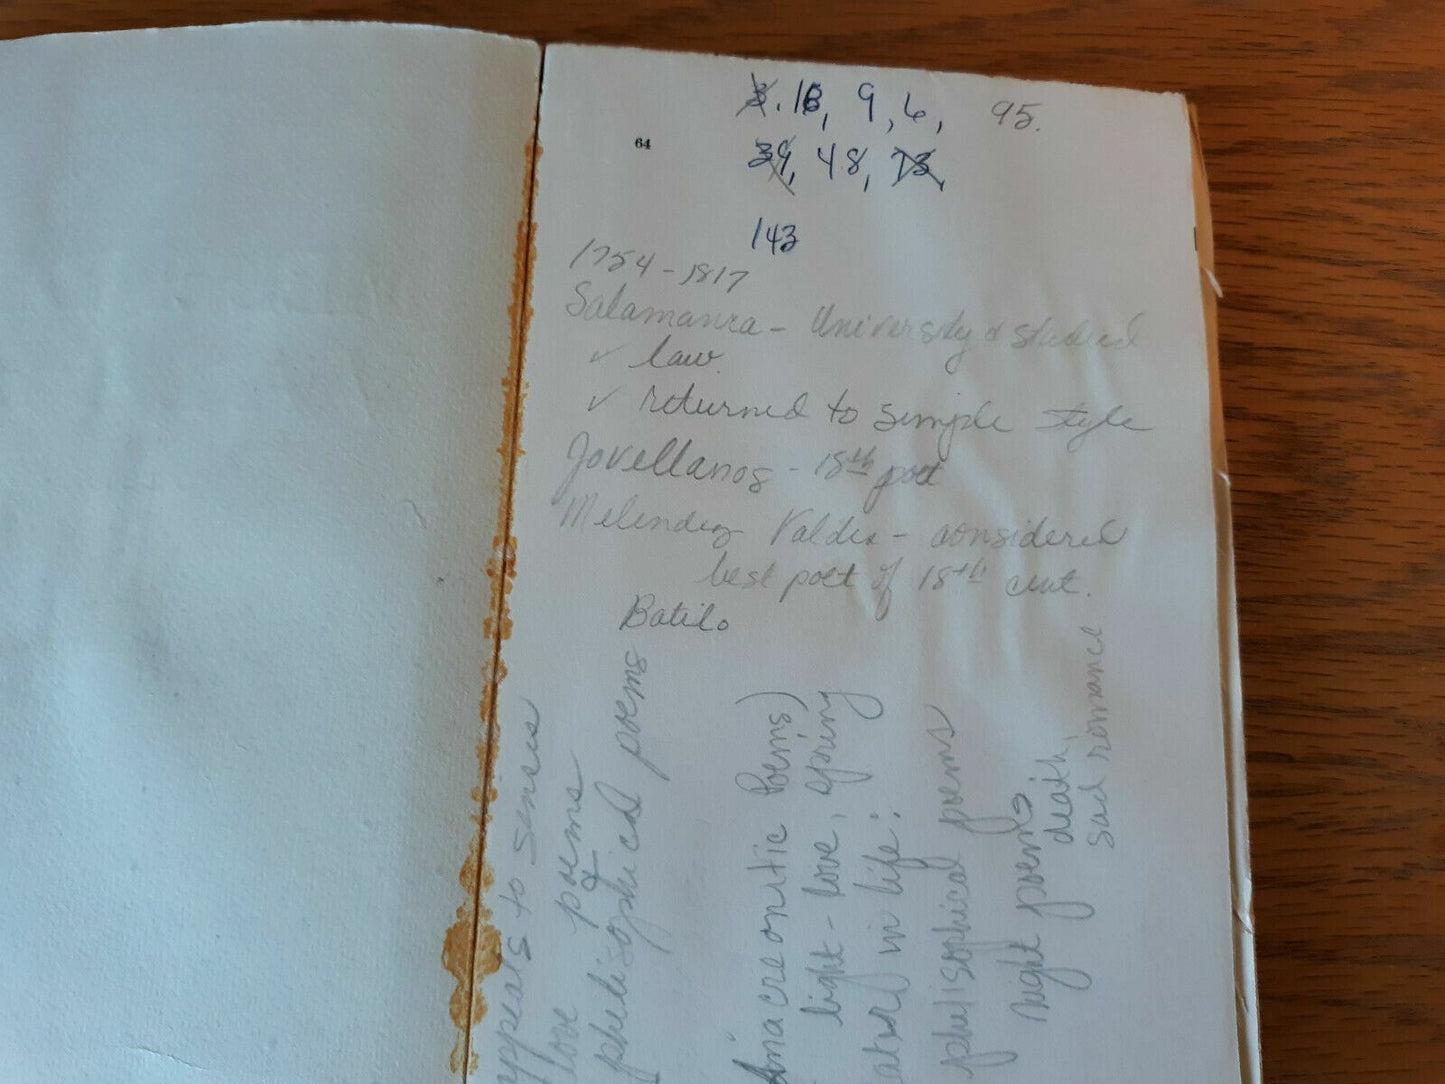 3. 18, 9, 6, 95.
64
39, 48, 73,
143
1754-1817
Salamanca - University & studied
✓ law.
✓ returned to simple style
Jovellanos - 18th poet
Melendez Valdes - considered
best poet of 18th cent.
Batilo
appeals to senses
love poems
philisophical poems
Anacreontic Poems)
light - love, spring
later in life:
philisophical poems
night poems
death,
sad romance